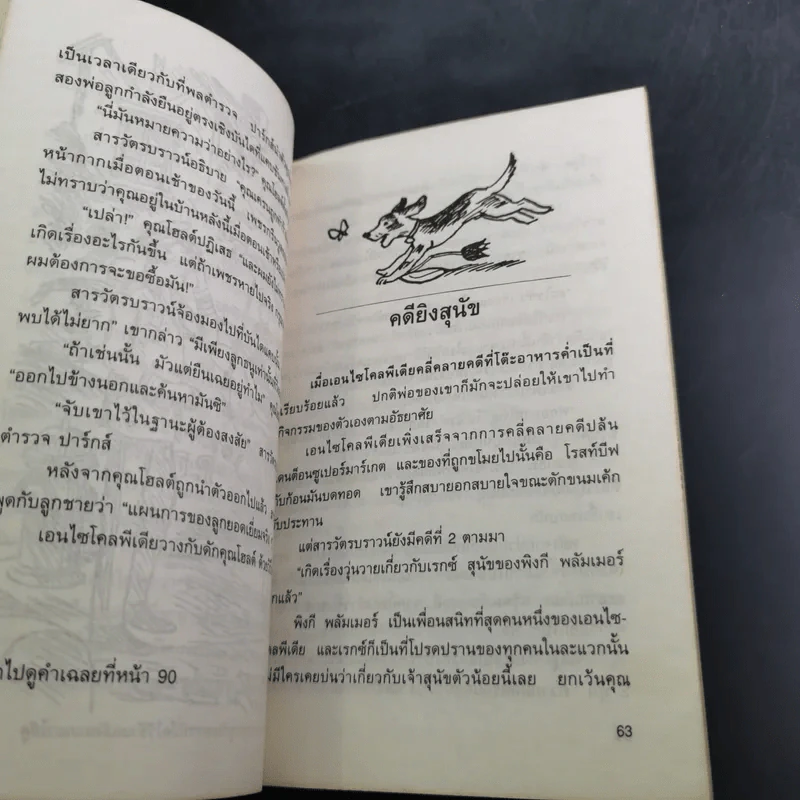 เป็นเวลาเดียวกับที่พลตำรวจ ปาร์กส์
สองพ่อลูกกำลังยืนอยู่ตรงเชิงบันไดที่
“นี่มันหมายความว่าอย่างไร?”
สารวัตรบราวน์อธิบาย
หน้ากากเมื่อตอนเช้าของวันนี้
ไม่ทราบว่าคุณอยู่ในบ้านหลังนี้เมื่อตอนเช้า
“เปล่า!” คุณโฮลต์ปฏิเสธ
เกิดเรื่องอะไรกันขึ้น แต่ถ้าเพชรหายไปจริง
ผมต้องการจะขอซื้อมัน!”
สารวัตรบราวน์จ้องมองไปที่บันได
พบได้ไม่ยาก” เขากล่าว “มีเพียงลูกธนูเท่านั้น
“ถ้าเช่นนั้น มัวแต่ยืนเฉยอยู่ทำไม”
“ออกไปข้างนอกและค้นหามันซิ”
“จับเขาไว้ในฐานะผู้ต้องสงสัย”
ตำรวจ ปาร์กส์
หลังจากคุณโฮลต์ถูกนำตัวออกไปแล้ว
พูดกับลูกชายว่า “แผนการของลูกยอดเยี่ยม
เอนไซโคลพีเดียวางกับดักคุณโฮลต์
ไปดูคำเฉลยที่หน้า 90
คดียิงสุนัข
เมื่อเอนไซโคลพีเดียคลี่คลายคดีที่โต๊ะอาหารค่ำเป็นที่
เรียบร้อยแล้ว ปกติพ่อของเขาก็มักจะปล่อยให้เขาไปทำ
กิจกรรมของตัวเองตามอัธยาศัย
เอนไซโคลพีเดียเพิ่งเสร็จจากการคลี่คลายคดีปล้น
ตอนซูเปอร์มาร์เกต และของที่ถูกขโมยไปนั้นคือ โรสท์บีฟ
กับก้อนมันบดทอด เขารู้สึกสบายอกสบายใจขณะตักขนมเค้ก
รับประทาน
แต่สารวัตรบราวน์ยังมีคดีที่ 2 ตามมา
“เกิดเรื่องวุ่นวายเกี่ยวกับเรกซ์ สุนัขของพิงกี พลัมเมอร์
แล้ว”
พิงกี พลัมเมอร์ เป็นเพื่อนสนิทที่สุดคนหนึ่งของเอนไซ-
โคลพีเดีย และเรกซ์ก็เป็นที่โปรดปรานของทุกคนในละแวกนั้น
ไม่มีใครเคยบ่นว่าเกี่ยวกับเจ้าสุนัขตัวน้อยนี้เลย ยกเว้นคุณ
63